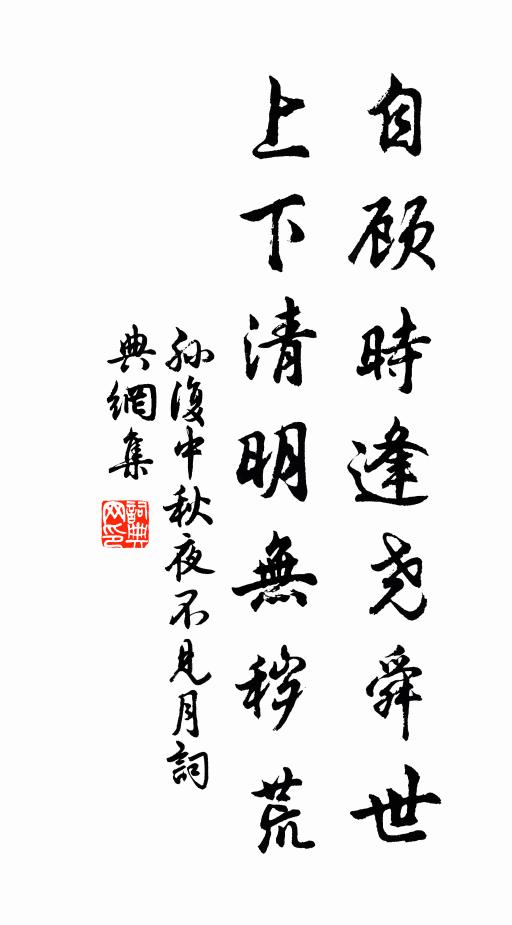 自顾時逢尧舜世
上下清明無秽荒
孙復中秋夜不见月詞
典網集
詞典网印